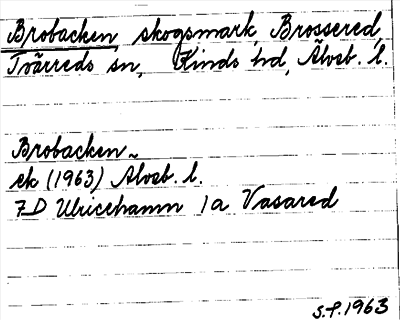 Brobacken, skogsmark, Brossered,
Tvärreds sn, Kinds hd, Älvsb. l.
Brobacken
ek (1963) Älvsb. l.
7D Ulricehamn 1a Vasared
S.F. 1963